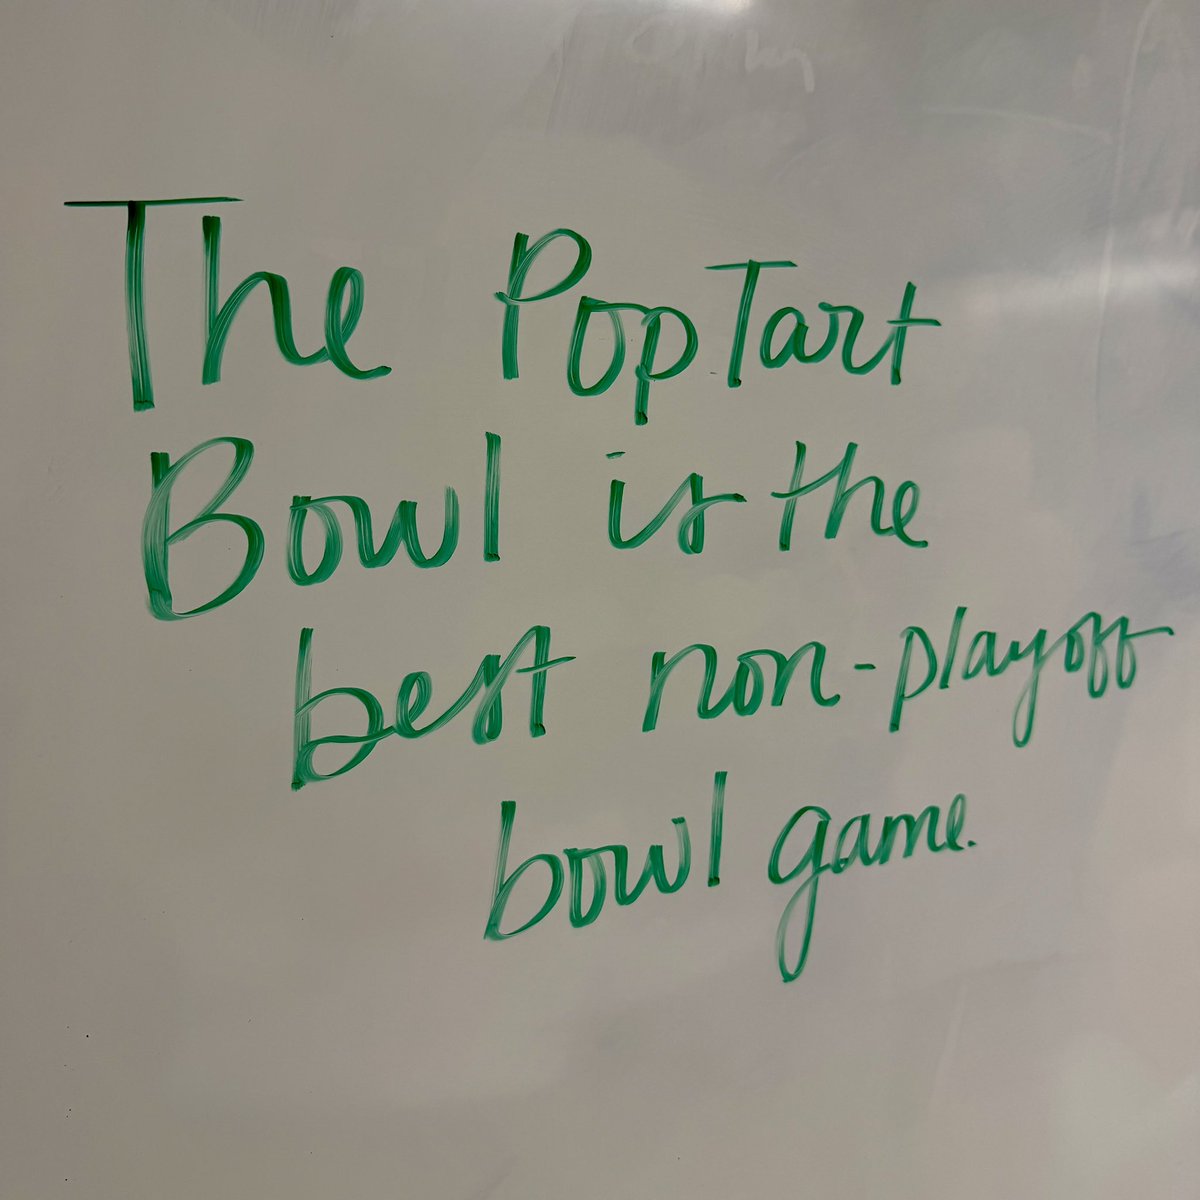 The PopTart
Bowl is the
best non-playoff
bowl game.